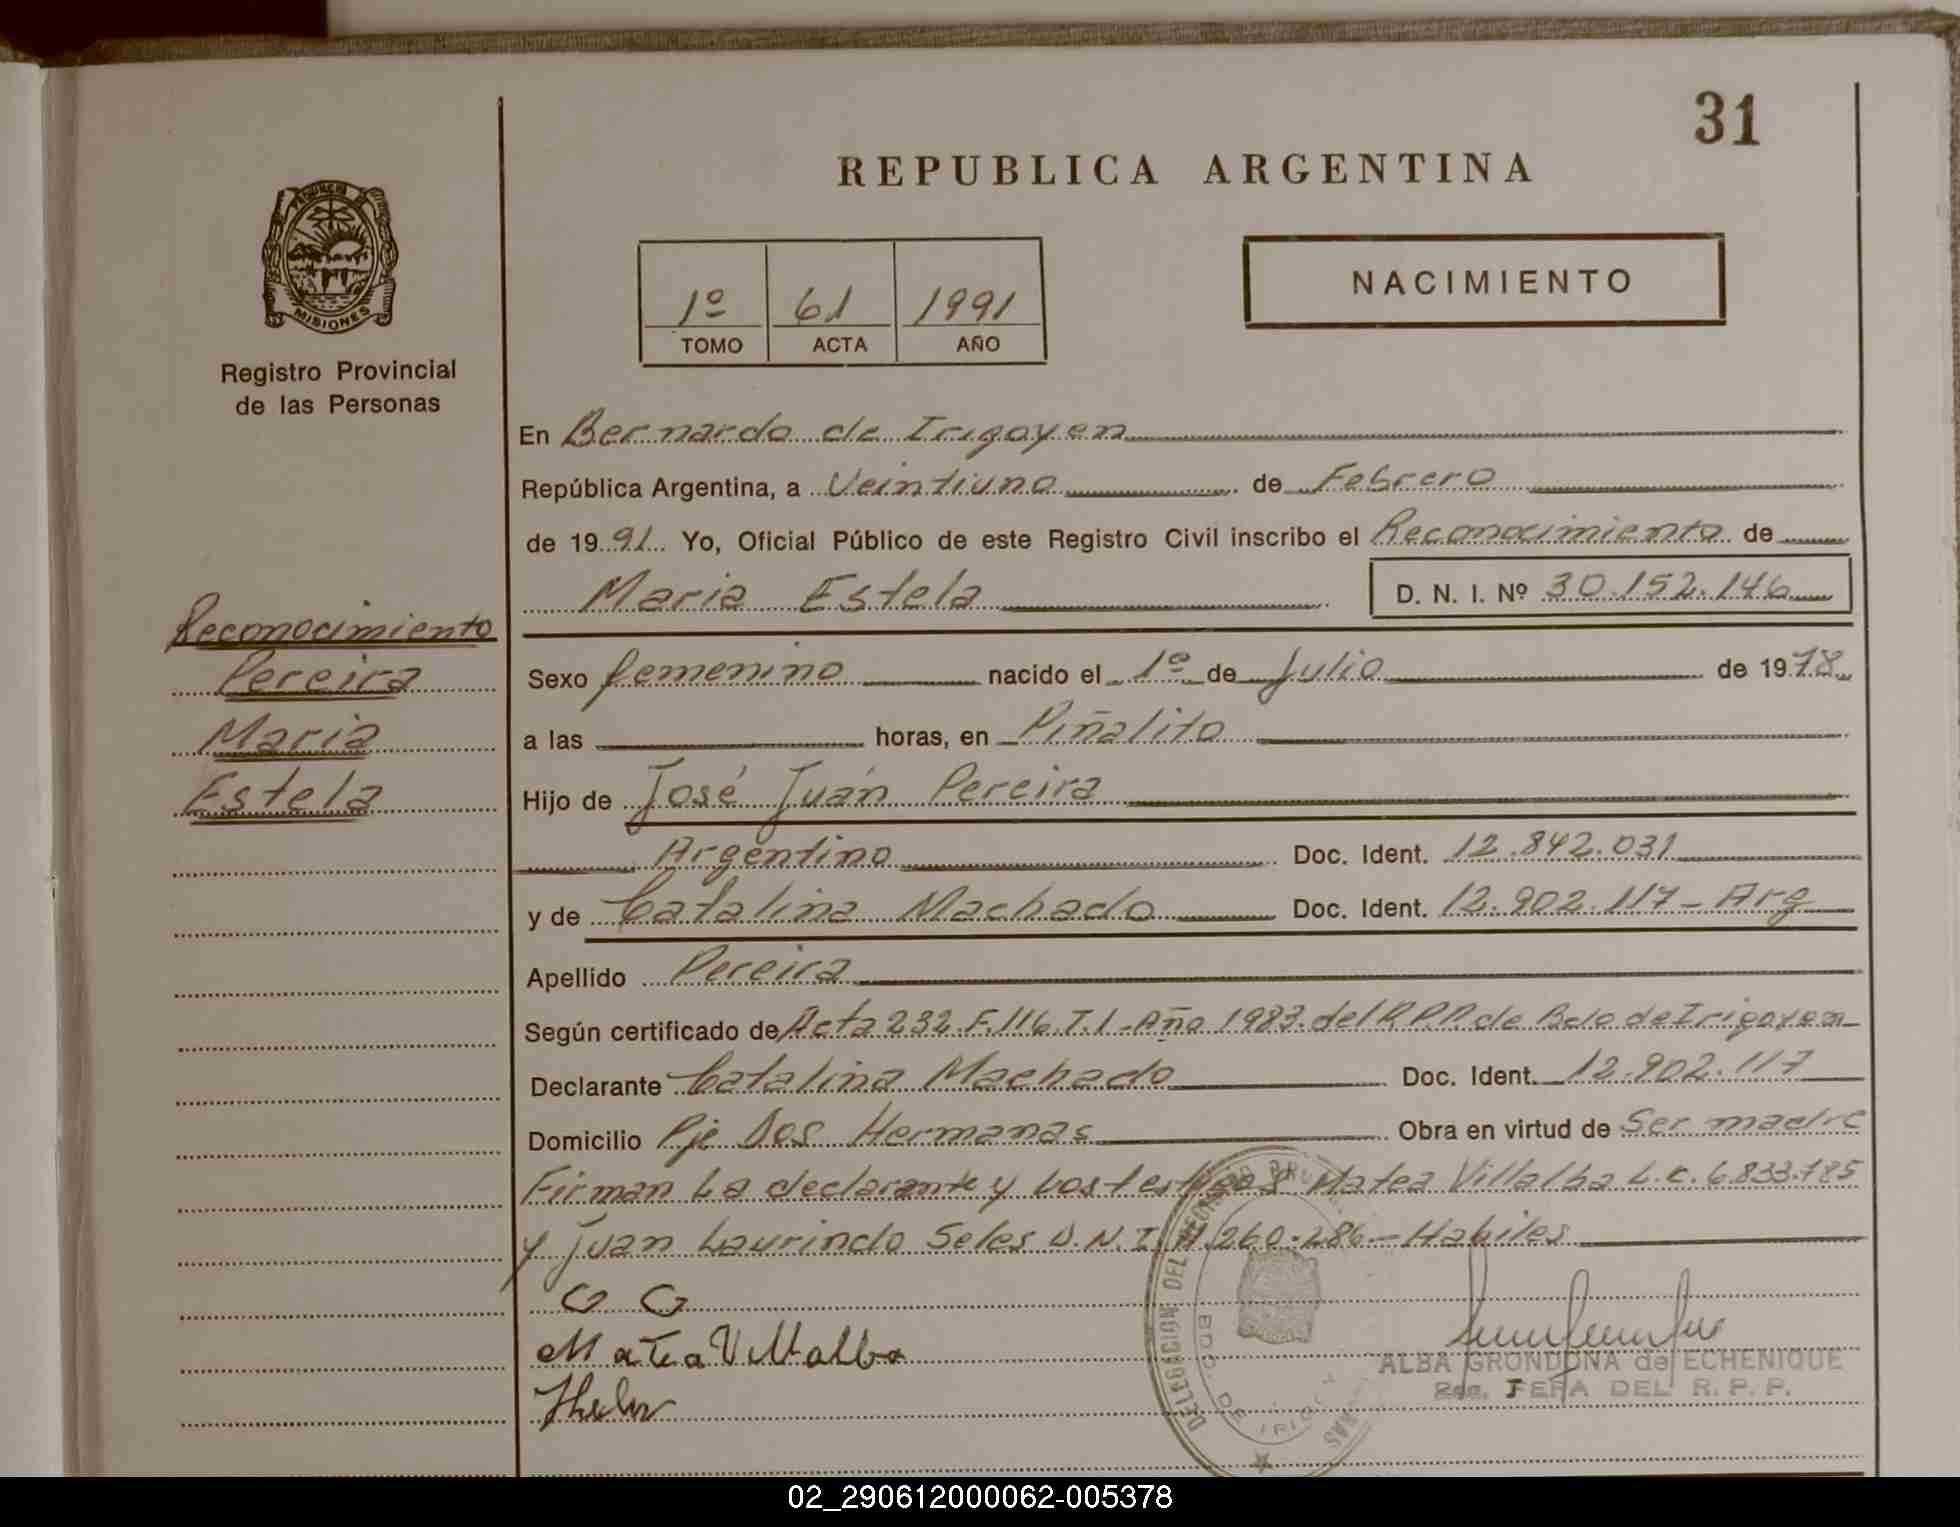 31
REPUBLICA ARGENTINA
PROVINCIA DE
MISIONES
Registro Provincial
de las Personas
1º 61 1991
TOMO ACTA AÑO
NACIMIENTO
En Bernardo de Irigoyen
República Argentina, a Veintiuno de Febrero
de 1991. Yo, Oficial Público de este Registro Civil inscribo el Reconocimiento de
Maria Estela D. N. I. Nº 30.152.146
Reconocimiento
Pereira
Maria
Estela
Sexo femenino nacido el 1º de Julio de 1978
a las horas, en Piñalito
Hijo de José Juán Pereira
Argentino Doc. Ident. 12.842.031
y de Catalina Machado Doc. Ident. 12.902.117 - Arg
Apellido Pereira
Según certificado de Acta 232. F. 116 T. 1 - Año 1983. del R.P.P. de Bdo de Irigoyen
Declarante Catalina Machado Doc. Ident. 12.902.117
Domicilio Pje Dos Hermanas Obra en virtud de Ser madre
Firman La declarante y Los testigos Matea Villalba L.C. 6.833.785
y Juan Laurindo Seles D.N.I. 260.286 - Habiles
Matea Villalba
DELEGACION DEL REGISTRO
BDO. DE IRIGOY
ALBA GRONDONA de ECHENIQUE
JEFA DEL R. P. P.
02_290612000062-005378